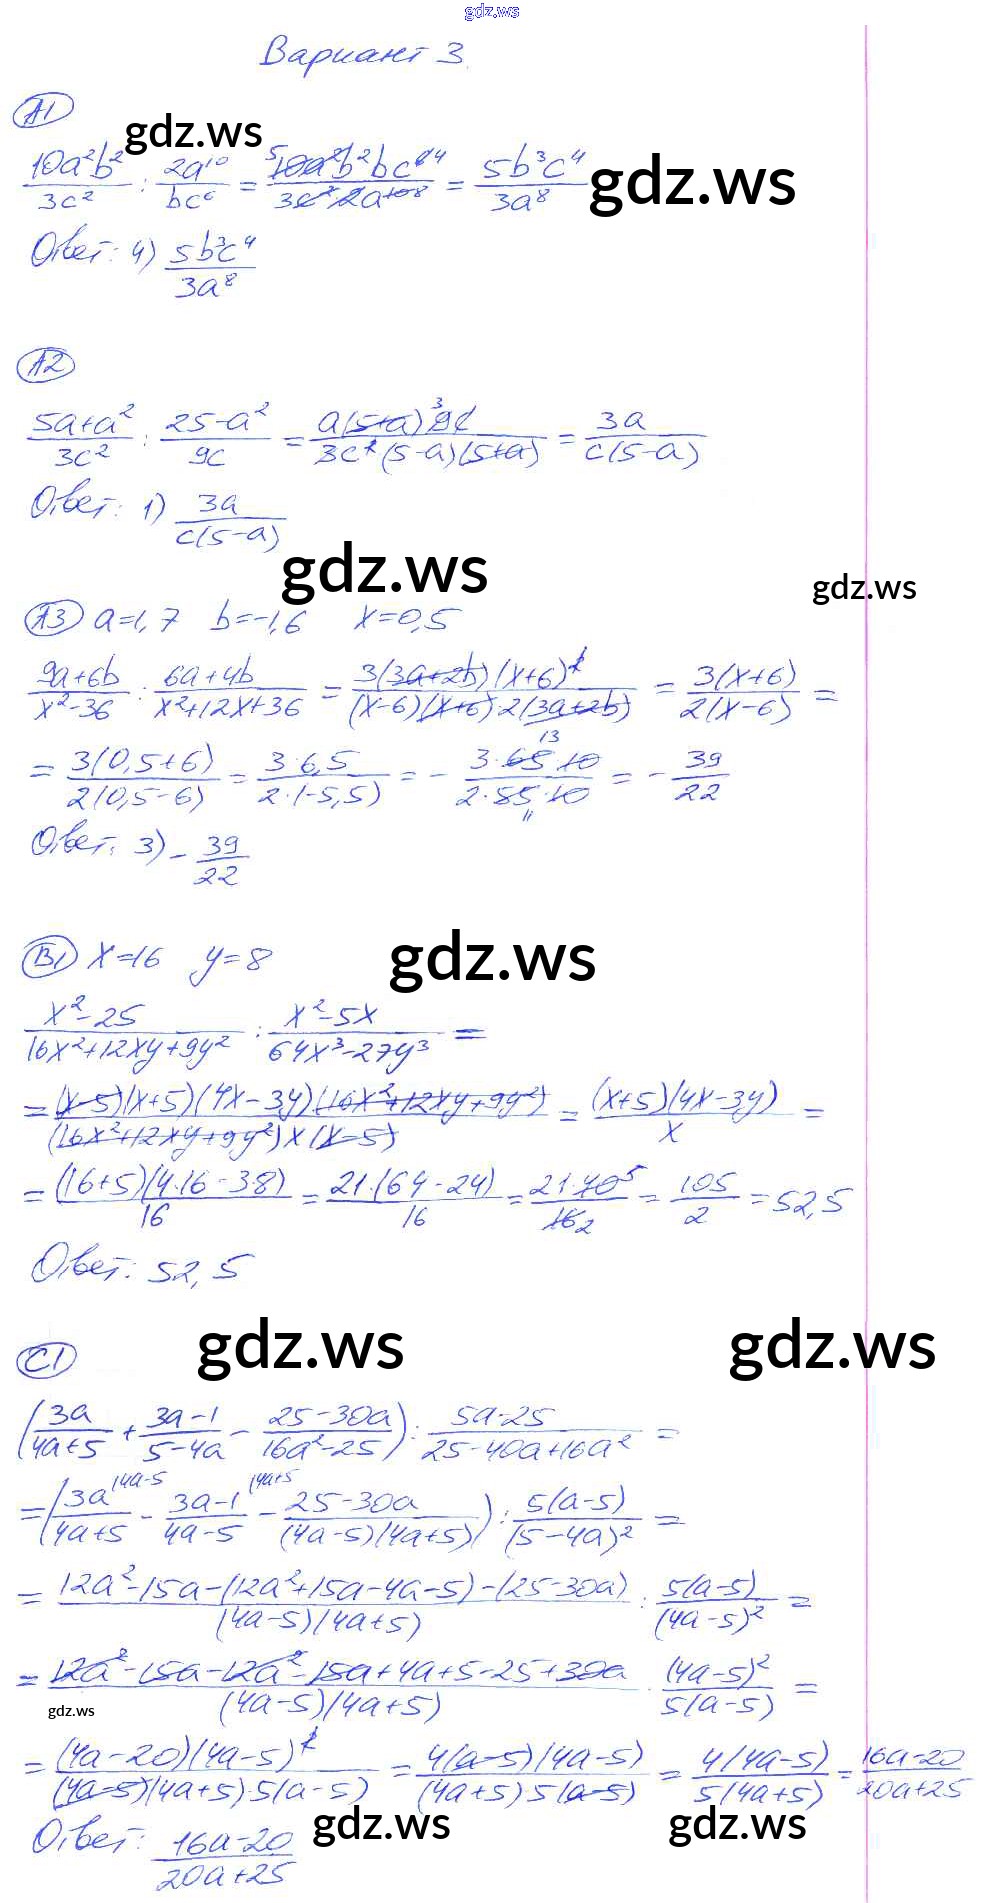 gdz.ws
Вариант 3.
А1
gdz.ws
10a²b²/3c² : 2a¹⁰/bc⁶ = 10a²b²bc⁶/3c²·2a¹⁰ = 5b³c⁴/3a⁸
gdz.ws
Ответ: 4) 5b³c⁴/3a⁸
А2
(5a+a²)/3c² : (25-a²)/9c = a(5+a)9c/3c²(5-a)(5+a) = 3a/c(5-a)
Ответ: 1) 3a/c(5-a)
gdz.ws
gdz.ws
А3 a=1,7 b=-1,6 x=0,5
(9a+6b)/(x²-36) : (6a+4b)/(x²+12x+36) = 3(3a+2b)(x+6)²/(x-6)(x+6)·2(3a+2b) = 3(x+6)/2(x-6) =
= 3(0,5+6)/2(0,5-6) = 3·6,5/2·(-5,5) = - 3·65·10/2·55·10 = - 39/22
Ответ: 3) - 39/22
В1 x=16 y=8
gdz.ws
(x²-25)/(16x²+12xy+9y²) : (x²-5x)/(64x³-27y³) =
= (x-5)(x+5)(4x-3y)(16x²+12xy+9y²)/(16x²+12xy+9y²)x(x-5) = (x+5)(4x-3y)/x =
= (16+5)(4·16-3·8)/16 = 21·(64-24)/16 = 21·40/16 = 105/2 = 52,5
Ответ: 52,5
gdz.ws
gdz.ws
С1
(3a/(4a+5) + (3a-1)/(5-4a) - (25-30a)/(16a²-25)) : (5a-25)/(25-40a+16a²) =
= (3a/(4a+5) - (3a-1)/(4a-5) - (25-30a)/(4a-5)(4a+5)) : 5(a-5)/(5-4a)² =
= (12a²-15a-(12a²+15a-4a-5)-(25-30a))/(4a-5)(4a+5) : 5(a-5)/(4a-5)² =
= (12a²-15a-12a²-15a+4a+5-25+30a)/(4a-5)(4a+5) · (4a-5)²/5(a-5) =
gdz.ws
= (4a-20)(4a-5)²/(4a-5)(4a+5)·5(a-5) = 4(a-5)(4a-5)/(4a+5)·5(a-5) = 4(4a-5)/5(4a+5) = (16a-20)/(20a+25)
gdz.ws
gdz.ws
Ответ: (16a-20)/(20a+25)